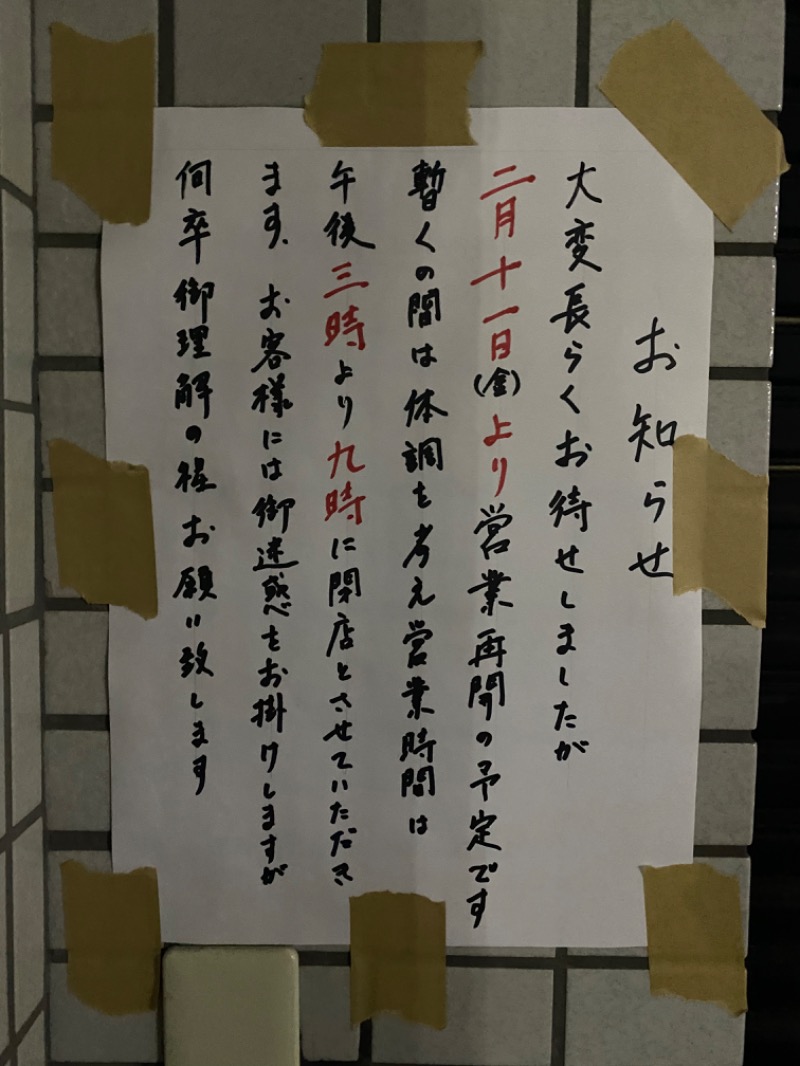 お知らせ
大変長らくお待せしましたが
二月十一日(金)より営業再開の予定です
暫くの間は体調を考え営業時間は
午後三時より九時に閉店とさせていただき
ます、お客様には御迷惑をお掛けしますが
何卒御理解の程お願い致します